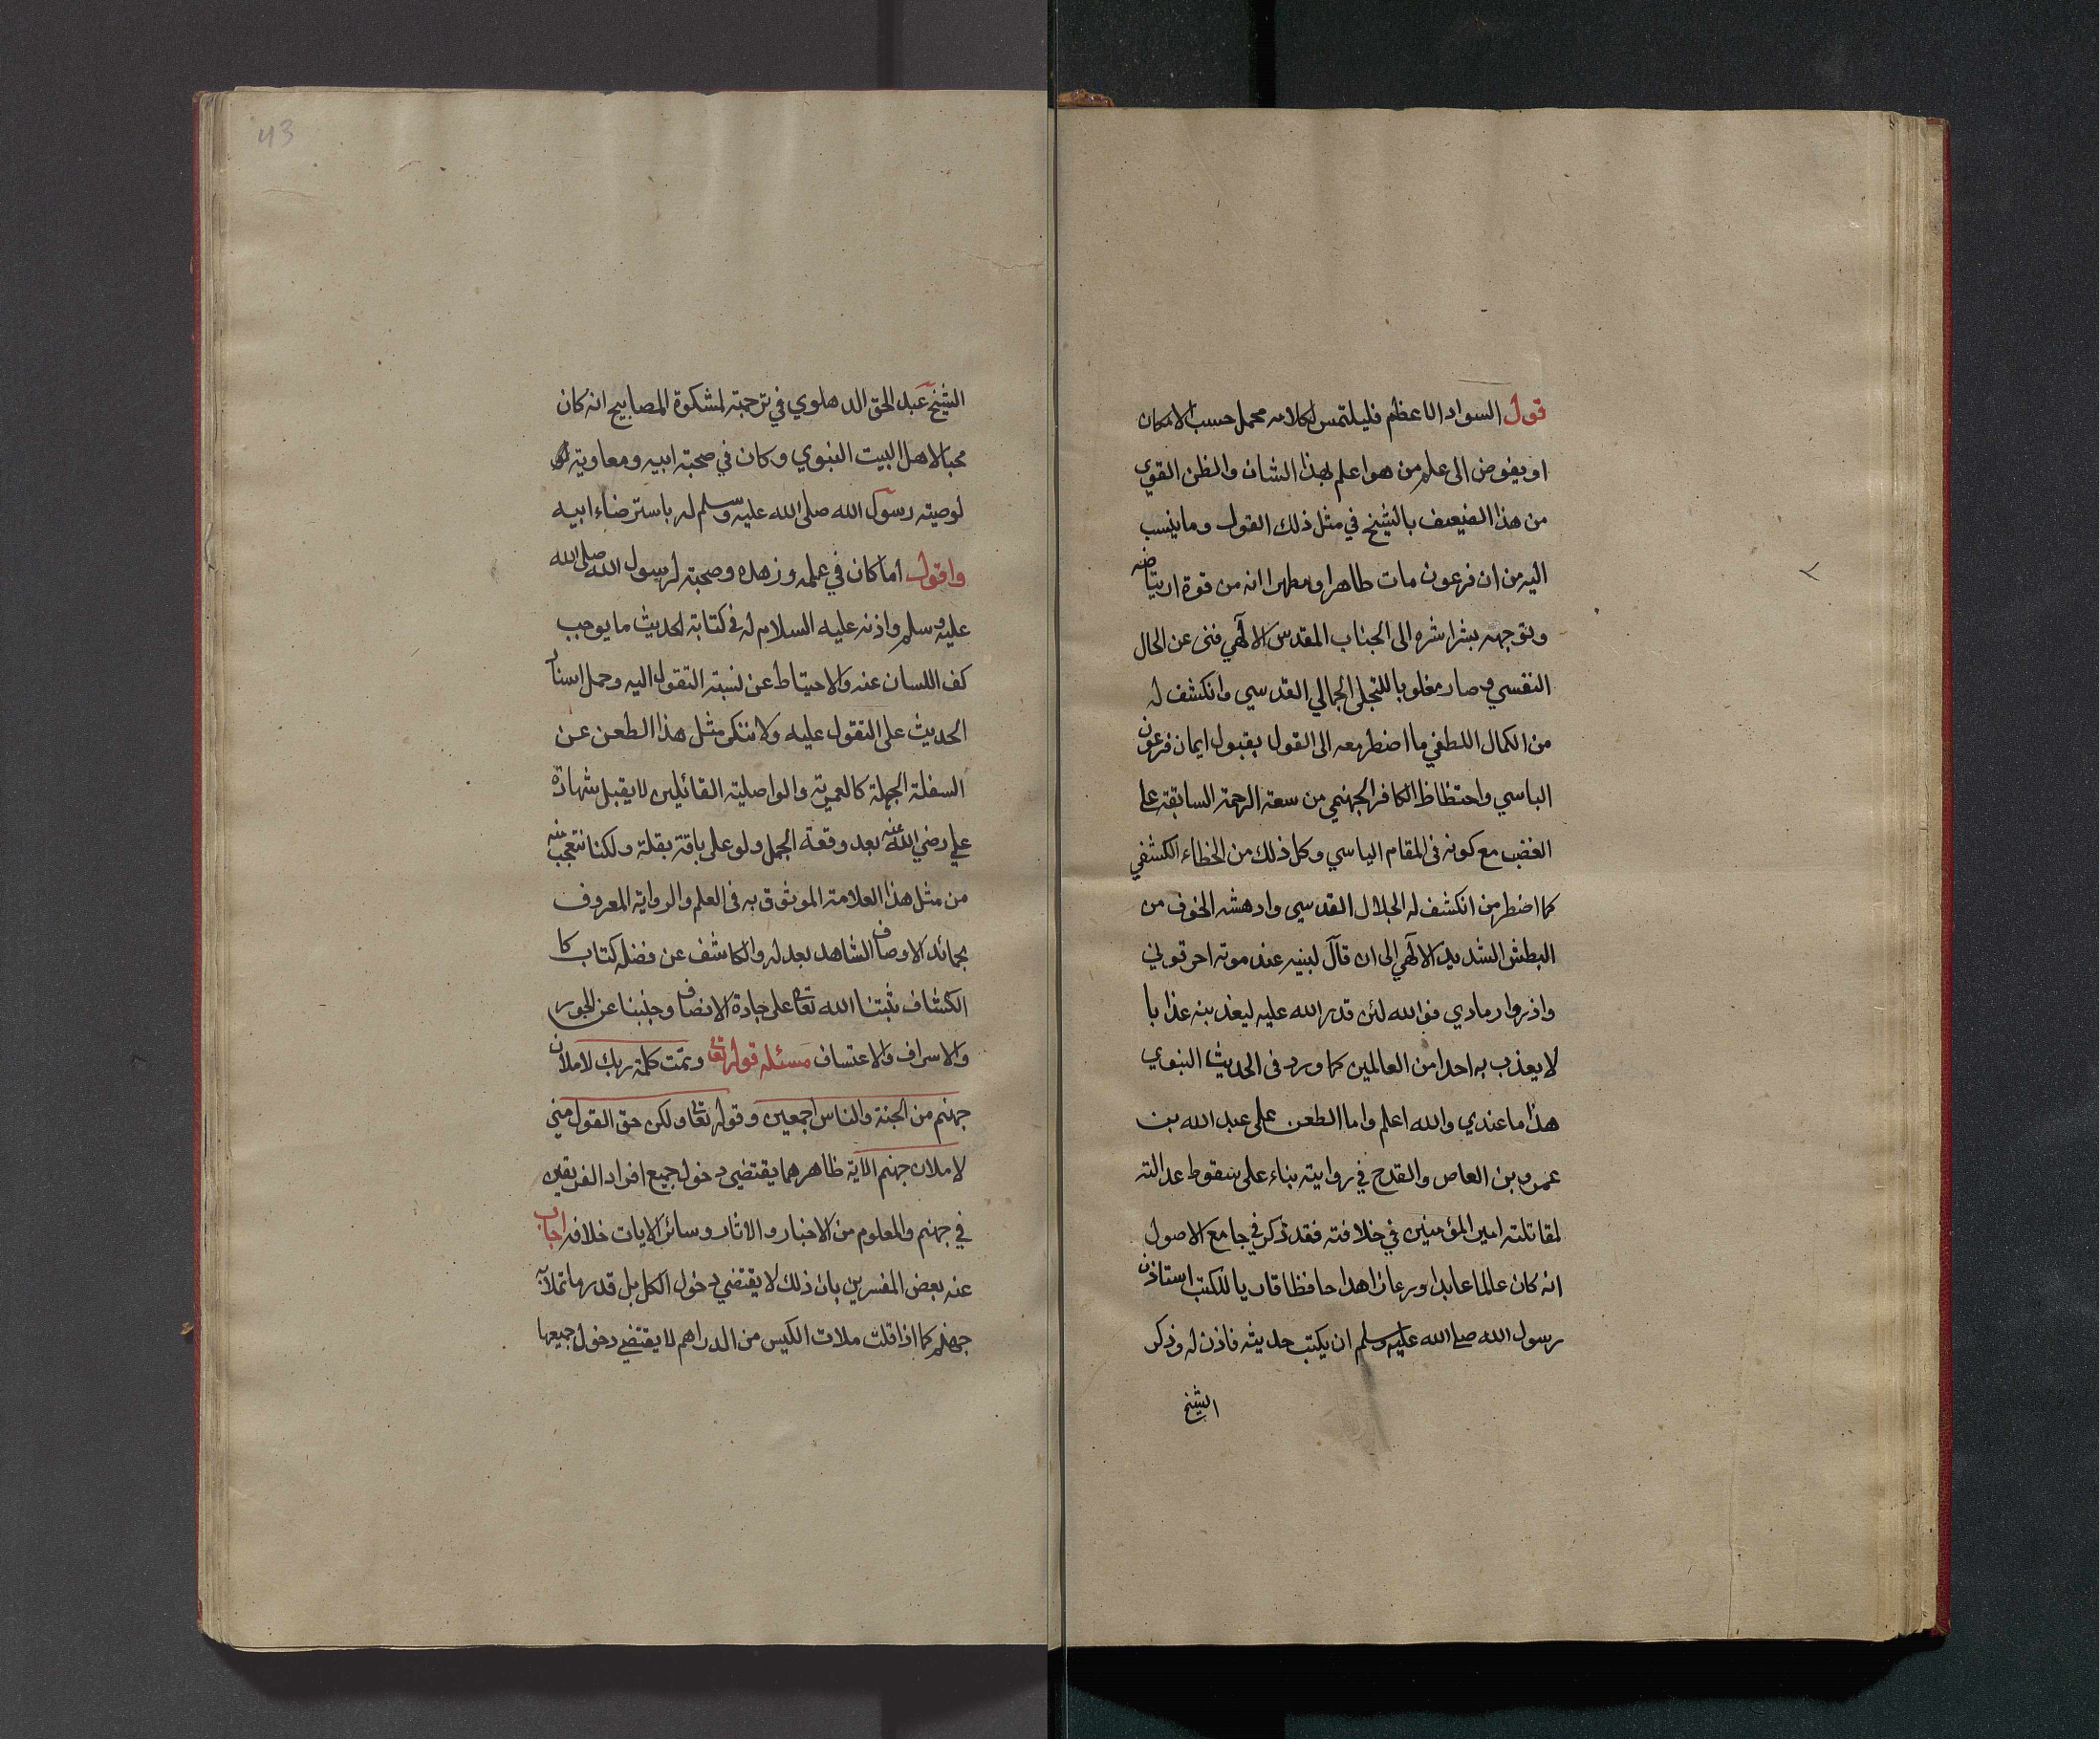 قول السواد الاعظم فليلتمس لكلامه محمل حسب الامكان
او يفوض الى علم من هو اعلم بهذا الشان والظن القوي
من هذا الضعيف بالشيخ في مثل ذلك القول وما ينسب
اليه من ان فرعون مات طاهرا ومطهرا انه من قوة ارتياضه
وتوجهه بشراشره الى الجناب المقدس الالٓهي فنى عن الحال
النفسي وصار مغلوبا للتجلى الجمالي القدسي وانكشف له
من الكمال اللطفي ما اضطر معه الى القول بقبول ايمان فرعون
الباسي واحتظاظ الكافر الجهنمي من سعة الرحمة السابقة على
الغضب مع كونه فى المقام الياسي وكل ذلك من الخطاء الكشفي
كما اضطر من انكشف له الجلال القدسي وادهشه الخوف من
البطش الشديد الالٓهي الى ان قال لبنيه عند موته احرقوني
واذروا رمادي فوالله لئن قدر الله عليه ليعذبنه عذابا
لا يعذب به احدا من العالمين كما ورد فى الحديث النبوي
هذا ما عندي والله اعلم واما الطعن على عبد الله بن
عمرو بن العاص والقدح في روايته بناء على سقوط عدالته
لمقاتلته امير المؤمنين في خلافته فقد ذكر في جامع الاصول
انه كان عالما عابدا ورعا زاهدا حافظا قاريا للكتب استاذن
رسول الله صلى الله عليه وسلم ان يكتب حديثه فاذن له وذكر
الشيخ
43
الشيخ عبد الحق الدهلوي في ترجمته لمشكوة المصابيح انه كان
محبا لاهل البيت النبوي وكان في صحبة ابيه ومعاوية
لوصيته رسول الله صلى الله عليه وسلم له باسترضاء ابيه
واقول اما كان في علمه وزهده وصحبته لرسول الله صلى الله
عليه وسلم واذنه عليه السلام له فى كتابة الحديث ما يوجب
كف اللسان عنه والاحتياط عن نسبة التقول اليه وحمل اسناد
الحديث على التقول عليه ولا ننكر مثل هذا الطعن عن
السفلة الجهلة كالعمرية والواصلية القائلين لا يقبل شهادة
علي رضي الله عنه بعد وقعة الجمل ولو على باقة بقلة ولكنا نتعجب منه
من مثل هذا العلامة الموثوق به فى العلم والرواية المعروف
بحمائد الاوصاف الشاهد بعدله والكاشف عن فضله كتاب كا
الكشاف ثبتنا الله تعالى على جادة الانصاف وجنبنا عن الجور
والاسراف والاعتساف مسئله قوله تعالى وتمت كلمة ربك لاملأن
جهنم من الجنة والناس اجمعين وقوله تعالى ولكن حق القول مني
لاملان جهنم الآية ظاهرهما يقتضي دخول جميع افراد الفريقين
في جهنم والمعلوم من الاخبار والاثار وسائر الايات خلافه اجاب
عنه بعض المفسرين بان ذلك لا يقتضي دخول الكل بل قدر ما تملأ به
جهنم كما اذا قلت ملات الكيس من الدراهم لا يقتضي دخول جميعها